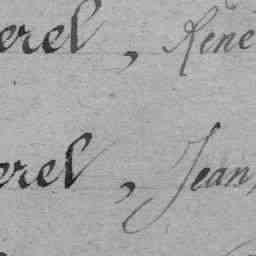 erel, René
erel, Jean,